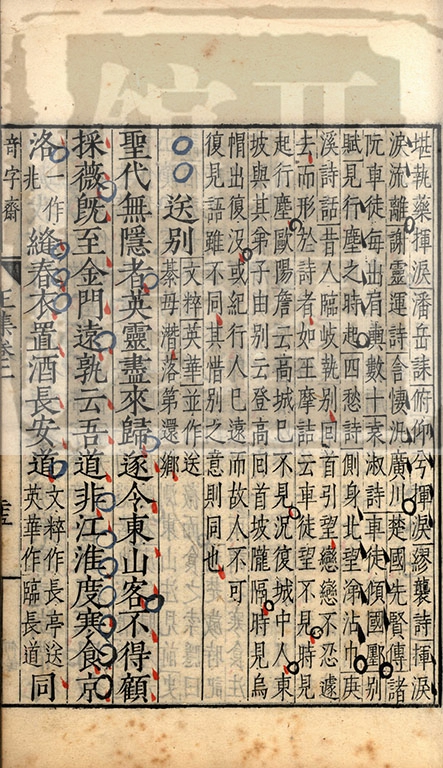 堪執藥揮淚潘岳誄俯仰兮揮淚繆襲詩揮淚
淚流離謝靈運詩含悽汎廣川楚國先賢傳諸
阮車徒每出肩輿數十哀淑詩車徒傾國鄽別
賦見行塵之時起四愁詩側身北望涕沾巾庚
溪詩話昔人臨歧執別回首引望戀戀不忍遽
去而形於詩者如王摩詰云車徒望不見時見
起行塵歐陽詹云高城已不見況復城中人東
坡與其弟子由別云登高回首坡隴隔時見烏
帽出復沒或紀行人已遠而故人不可
復見語雖不同其惜別之意則同也
送別 文粹英華並作送
綦毋潛落第還鄉
聖代無隱者英靈盡來歸遂令東山客不得顧
採薇旣至金門遠孰云吾道非江淮度寒食京
洛一作兆縫春衣置酒長安道文粹作長亭送英華作臨長道同